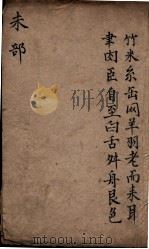 竹米糸缶网羊羽老而耒耳
聿肉臣自至臼舌舛舟艮色
未部